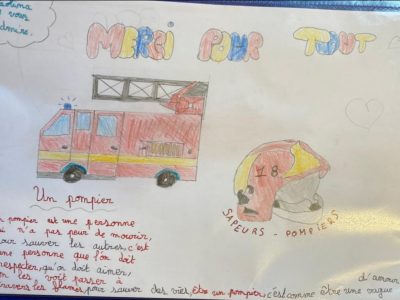 MERCI POUR TOUT
vous
admire.
18
SAPEURS - POMPIERS
Un pompier
pompier est une personne
qui n'a pas peur de mourir,
pour sauver les autres, c'est
une personne que l'on doit
respecter, qu'on doit aimer,
on les voit passer à
travers les flames, pour sauver des vies, être un pompier, c'est comme être une vague
d'amour